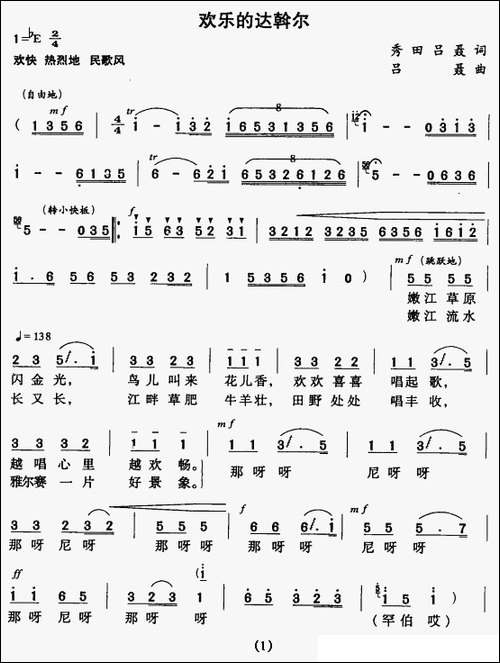 欢乐的达斡尔
1=♭E 2/4
欢快 热烈地 民歌风
秀田吕聂 词
吕 聂 曲
(自由地)
mf tr 8
( 1 3 5 6 | 4/4 i - i 3 2 | 1 6 5 3 1 3 5 1 | i - - 0 3 1 3 |
tr 8
i - - 6 1 3 5 | 6 - 6 2 i | 6 5 3 2 6 1 2 6 | 5 - - 0 6 3 6 |
(转小快板) f
5 - - 0 3 5 :| i 5 6 3 5 2 3 1 | 3 2 1 2 3 2 3 5 6 3 5 6 i 6 1 2 |
mf (跳跃地)
i . 6 5 6 5 3 2 3 2 | 1 5 3 5 6 i 0 ) | 5 5 5 5 |
嫩江 草原
嫩江 流水
♩=138
2 3 5 . i | 3 3 2 3 | 1 1 1 3 . 5 | 3 3 2 3 | 5 . i 3 |
闪金光, 鸟儿叫来 花儿香, 欢欢喜喜 唱起歌,
长又长, 江畔草肥 牛羊壮, 田野处处 唱丰收,
mf
3 3 3 2 | 1 1 1 | 1 1 3 . 5 | 1 1 3 . 5 |
越唱心里 越欢畅。 那呀呀 尼呀呀
雅尔赛一片 好景象。
f mf
3 3 2 3 2 | 5 5 5 5 | 6 6 6 . i | 5 5 5 . 7 |
那呀尼呀 那呀呀 那呀呀 尼呀呀
ff
i i 6 5 | 3 2 3 1 | 6 2 3 5 | 6 3 2 3 | i 5 i ) |
那呀尼呀 那呀 呀 (罕伯 哎)
(1)